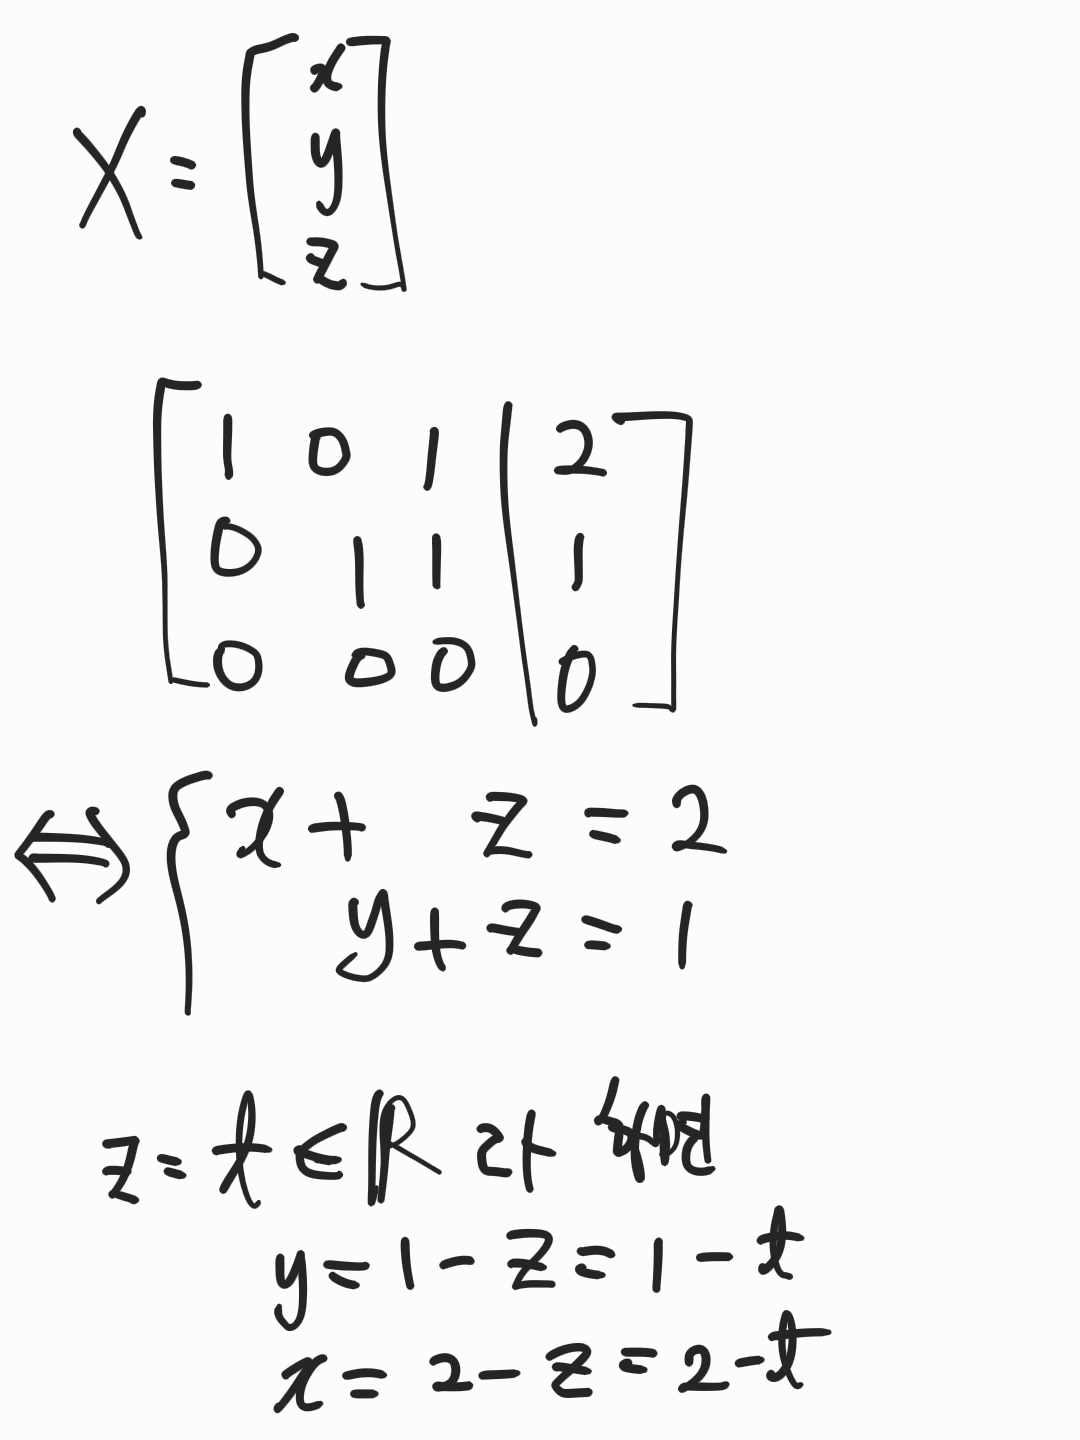 X = [x
y
z]
[1 0 1 | 2
0 1 1 | 1
0 0 0 | 0]
⇔ { x + z = 2
y + z = 1
z = t ∈ ℝ 라
y = 1 - z = 1 - t
x = 2 - z = 2 - t